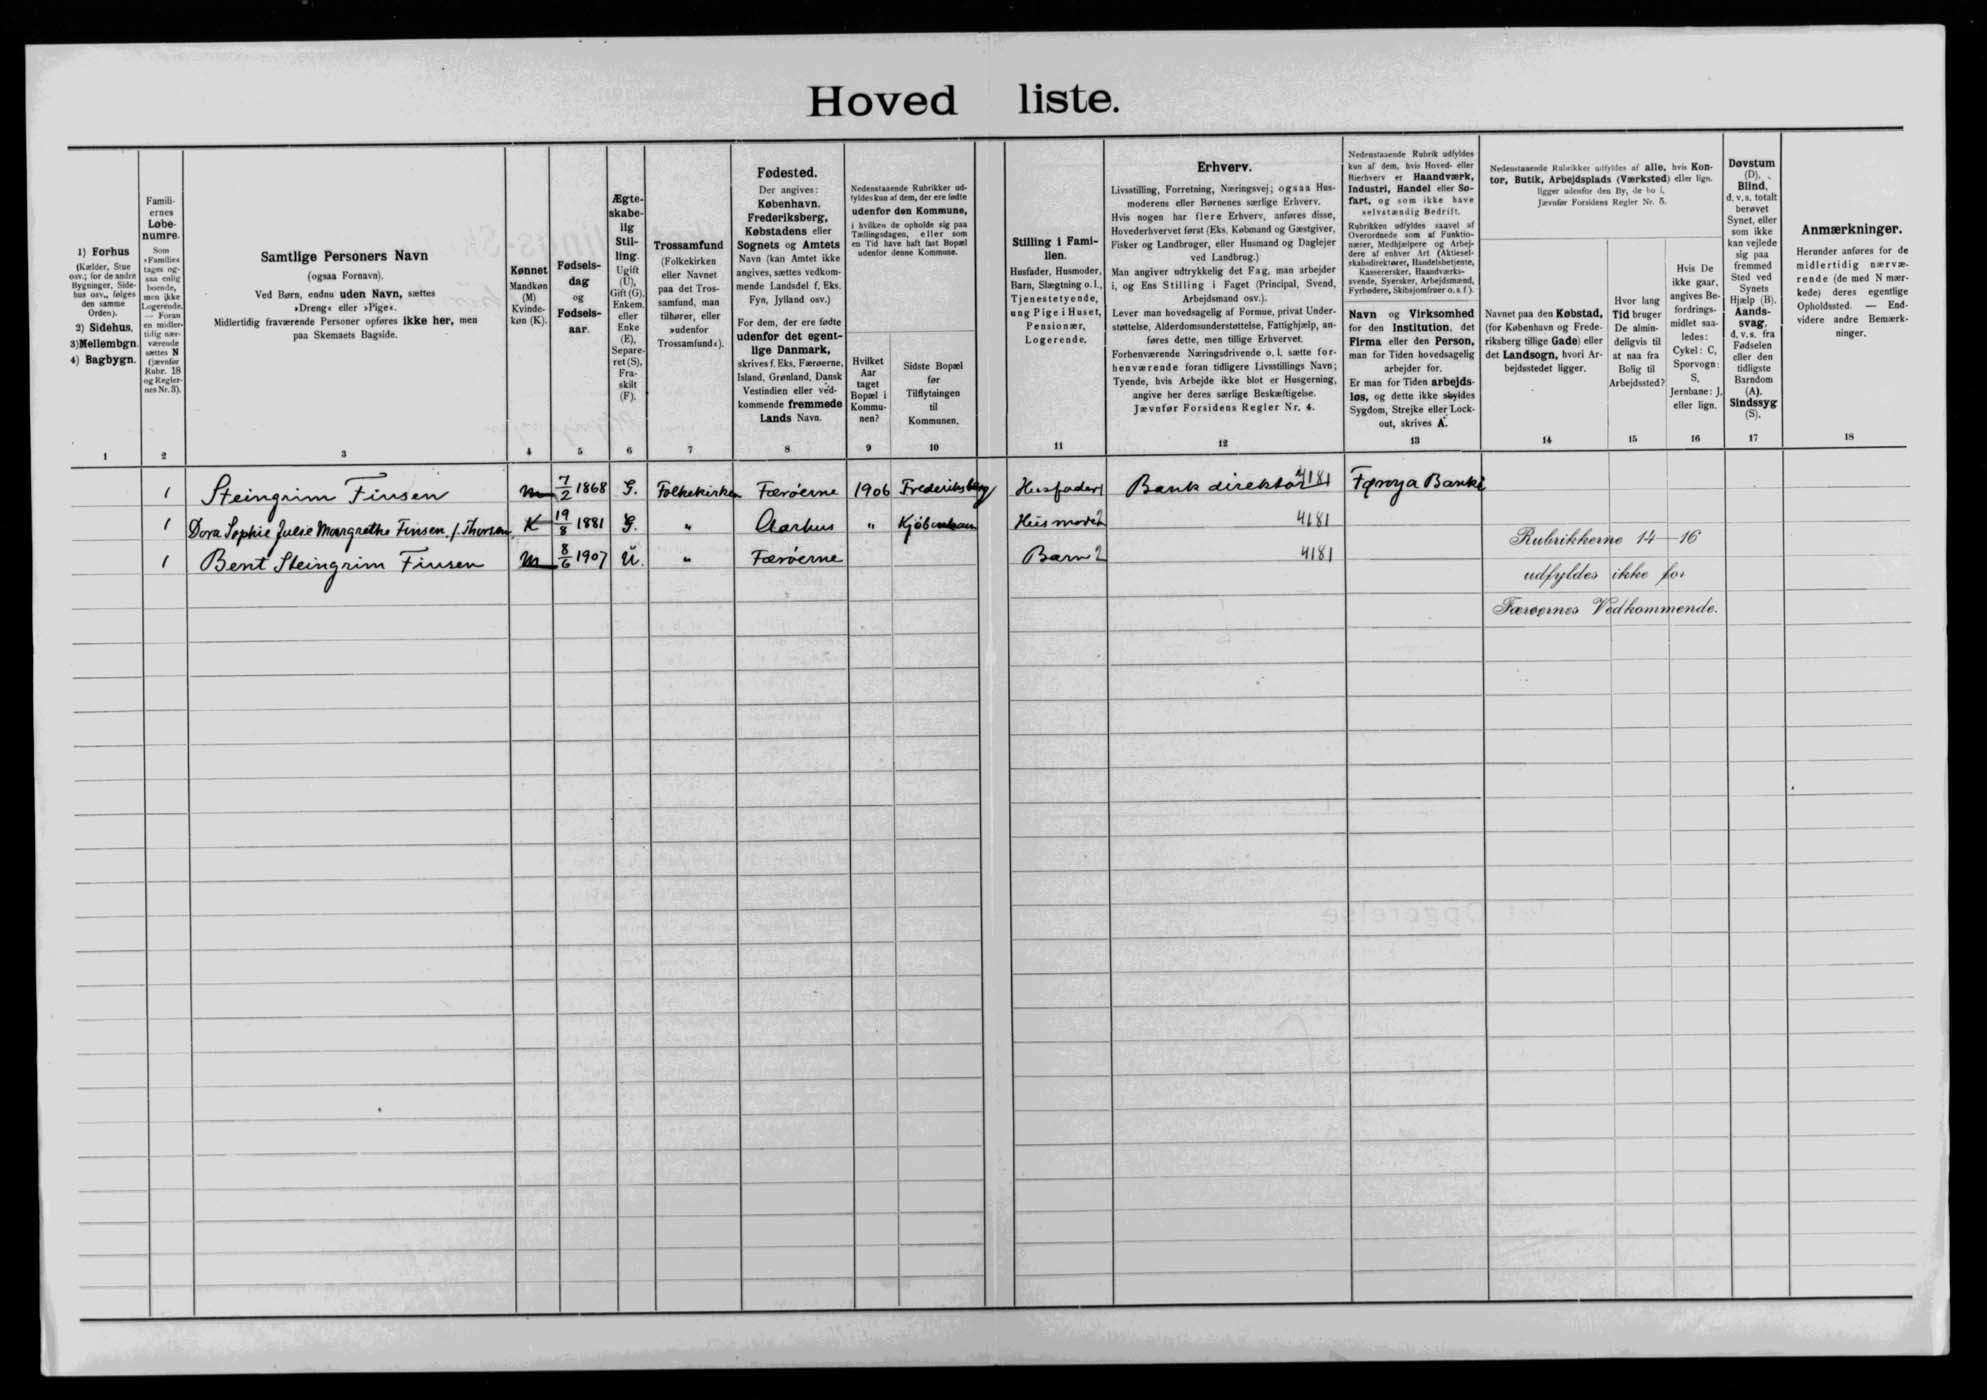 Hovedliste.
1) Forhus
(Kælder, Stue
osv.; for de andre
Bygninger, Side-
hus osv., følges
den samme
Orden).
2) Sidehus.
3) Mellembgn.
4) Bagbygn.
Famili-
ernes
Løbe-
numre.
Som
»Familie«
tages og-
saa enlig
boende,
men ikke
Logerende.
— Foran
en midler-
tidig nær-
værende
sættes N
(jævnfør
Rubr. 18
og Regler-
nes Nr. 3).
Samtlige Personers Navn
(ogsaa Fornavn).
Ved Børn, endnu uden Navn, sættes
»Dreng« eller »Pige«.
Midlertidig fraværende Personer opføres ikke her, men
paa Skemaets Bagside.
Kønnet
Mandkøn
(M)
Kvinde-
køn (K).
Fødsels-
dag
og
Fødsels-
aar.
Ægte-
skabe-
lig
Stil-
ling.
Ugift
(U),
Gift (G),
Enkem.
eller
Enke
(E),
Separe-
ret (S),
Fra-
skilt
(F).
Trossamfund
(Folkekirken
eller Navnet
paa det Tros-
samfund, man
tilhører, eller
»udenfor
Trossamfund«).
Fødested.
Der angives:
København,
Frederiksberg,
Købstadens eller
Sognets og Amtets
Navn (kan Amtet ikke
angives, sættes vedkom-
mende Landsdel f. Eks.
Fyn, Jylland osv.)
For dem, der ere fødte
udenfor det egent-
lige Danmark,
skrives f. Eks. Færøerne,
Island, Grønland, Dansk
Vestindien eller ved-
kommende fremmede
Lands Navn.
Nedenstaaende Rubrikker ud-
fyldes kun af dem, der ere fødte
udenfor den Kommune,
i hvilken de opholde sig paa
Tællingsdagen, eller som
en Tid have haft fast Bopæl
udenfor denne Kommune.
Hvilket
Aar
taget
Bopæl i
Kommu-
nen?
Sidste Bopæl
før
Tilflytningen
til
Kommunen.
Stilling i Fami-
lien.
Husfader, Husmoder,
Barn, Slægtning o. l.,
Tjenestetyende,
ung Pige i Huset,
Pensionær,
Logerende.
Erhverv.
Livsstilling, Forretning, Næringsvej; ogsaa Hus-
moderens eller Børnenes særlige Erhverv.
Hvis nogen har flere Erhverv, anføres disse,
Hovederhvervet først (Eks. Købmand og Gæstgiver,
Fisker og Landbruger, eller Husmand og Daglejer
ved Landbrug.)
Man angiver udtrykkelig det Fag, man arbejder
i, og Ens Stilling i Faget (Principal, Svend,
Arbejdsmand osv.).
Lever man hovedsagelig af Formue, privat Under-
støttelse, Alderdomsunderstøttelse, Fattighjælp, an-
føres dette, men tillige Erhvervet.
Forhenværende Næringsdrivende o. l. sætte for-
henværende foran tidligere Livsstillings Navn;
Tyende, hvis Arbejde ikke blot er Husgerning,
angive her deres særlige Beskæftigelse.
Jævnfør Forsidens Regler Nr. 4.
Nedenstaaende Rubrik udfyldes
kun af dem, hvis Hoved- eller
Bierhverv er Haandværk,
Industri, Handel eller Sø-
fart, og som ikke have
selvstændig Bedrift.
Rubrikken udfyldes saavel af
Overordnede som af Funktio-
nærer, Medhjælpere og Arbej-
dere af enhver Art (Aktiesel-
skabsdirektører, Handelsbetjente,
Kassererskér, Haandværks-
svende, Syersker, Arbejdsmænd,
Fyrbødere, Skibsjomfruer o. s. f.).
Navn og Virksomhed
for den Institution, det
Firma eller den Person,
man for Tiden hovedsagelig
arbejder for.
Er man for Tiden arbejds-
løs, og dette ikke skyldes
Sygdom, Strejke eller Lock-
out, skrives A.
Nedenstaaende Rubrikker udfyldes af alle, hvis Kon-
tor, Butik, Arbejdsplads (Værksted) eller lign.
ligger udenfor den By, de bo i.
Jævnfør Forsidens Regler Nr. 5.
Navnet paa den Købstad,
(for København og Frede-
riksberg tillige Gade) eller
det Landsogn, hvori Ar-
bejdsstedet ligger.
Hvor lang
Tid bruger
De almin-
deligvis til
at naa fra
Bolig til
Arbejdssted?
Hvis De
ikke gaar,
angives Be-
fordrings-
midlet saa-
ledes:
Cykel: C,
Sporvogn:
S,
Jernbane: J,
eller lign.
Døvstum
(D),
Blind,
d. v. s. totalt
berøvet
Synet, eller
som ikke
kan vejlede
sig paa
fremmed
Sted ved
Synets
Hjælp (B).
Aands-
svag,
d. v. s. fra
Fødselen
eller den
tidligste
Barndom
(A).
Sindssyg
(S).
Anmærkninger.
Herunder anføres for de
midlertidig nærvæ-
rende (de med N mær-
kede) deres egentlige
Opholdssted. — End-
videre andre Bemærk-
ninger.
1 2 3 4 5 6 7 8 9 10 11 12 13 14 15 16 17 18
1 Steingrim Finsen M 7/2 1868 G. Folkekirken Færöerne 1906 Frederiksberg Husfader 1 Bankdirektör 4181 Føroya Banki
1 Dora Sophie Julie Margrethe Finsen f. Thorsen K 19/8 1881 G. " Aarhus " Kjöbenhavn Husmoder 2 4181
1 Bent Steingrim Finsen M 8/6 1907 U. " Færöerne Barn 2 4181
Rubrikkerne 14—16
udfyldes ikke for
Færøernes Vedkommende.